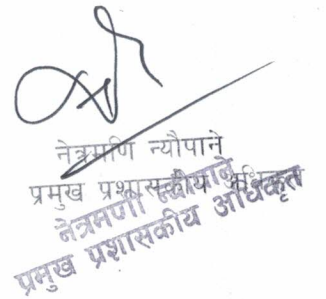 नेत्रमणि न्यौपाने
प्रमुख प्रशासकीय अधिकृत
नेत्रमणी न्यौपाने
प्रमुख प्रशासकीय अधिकृत